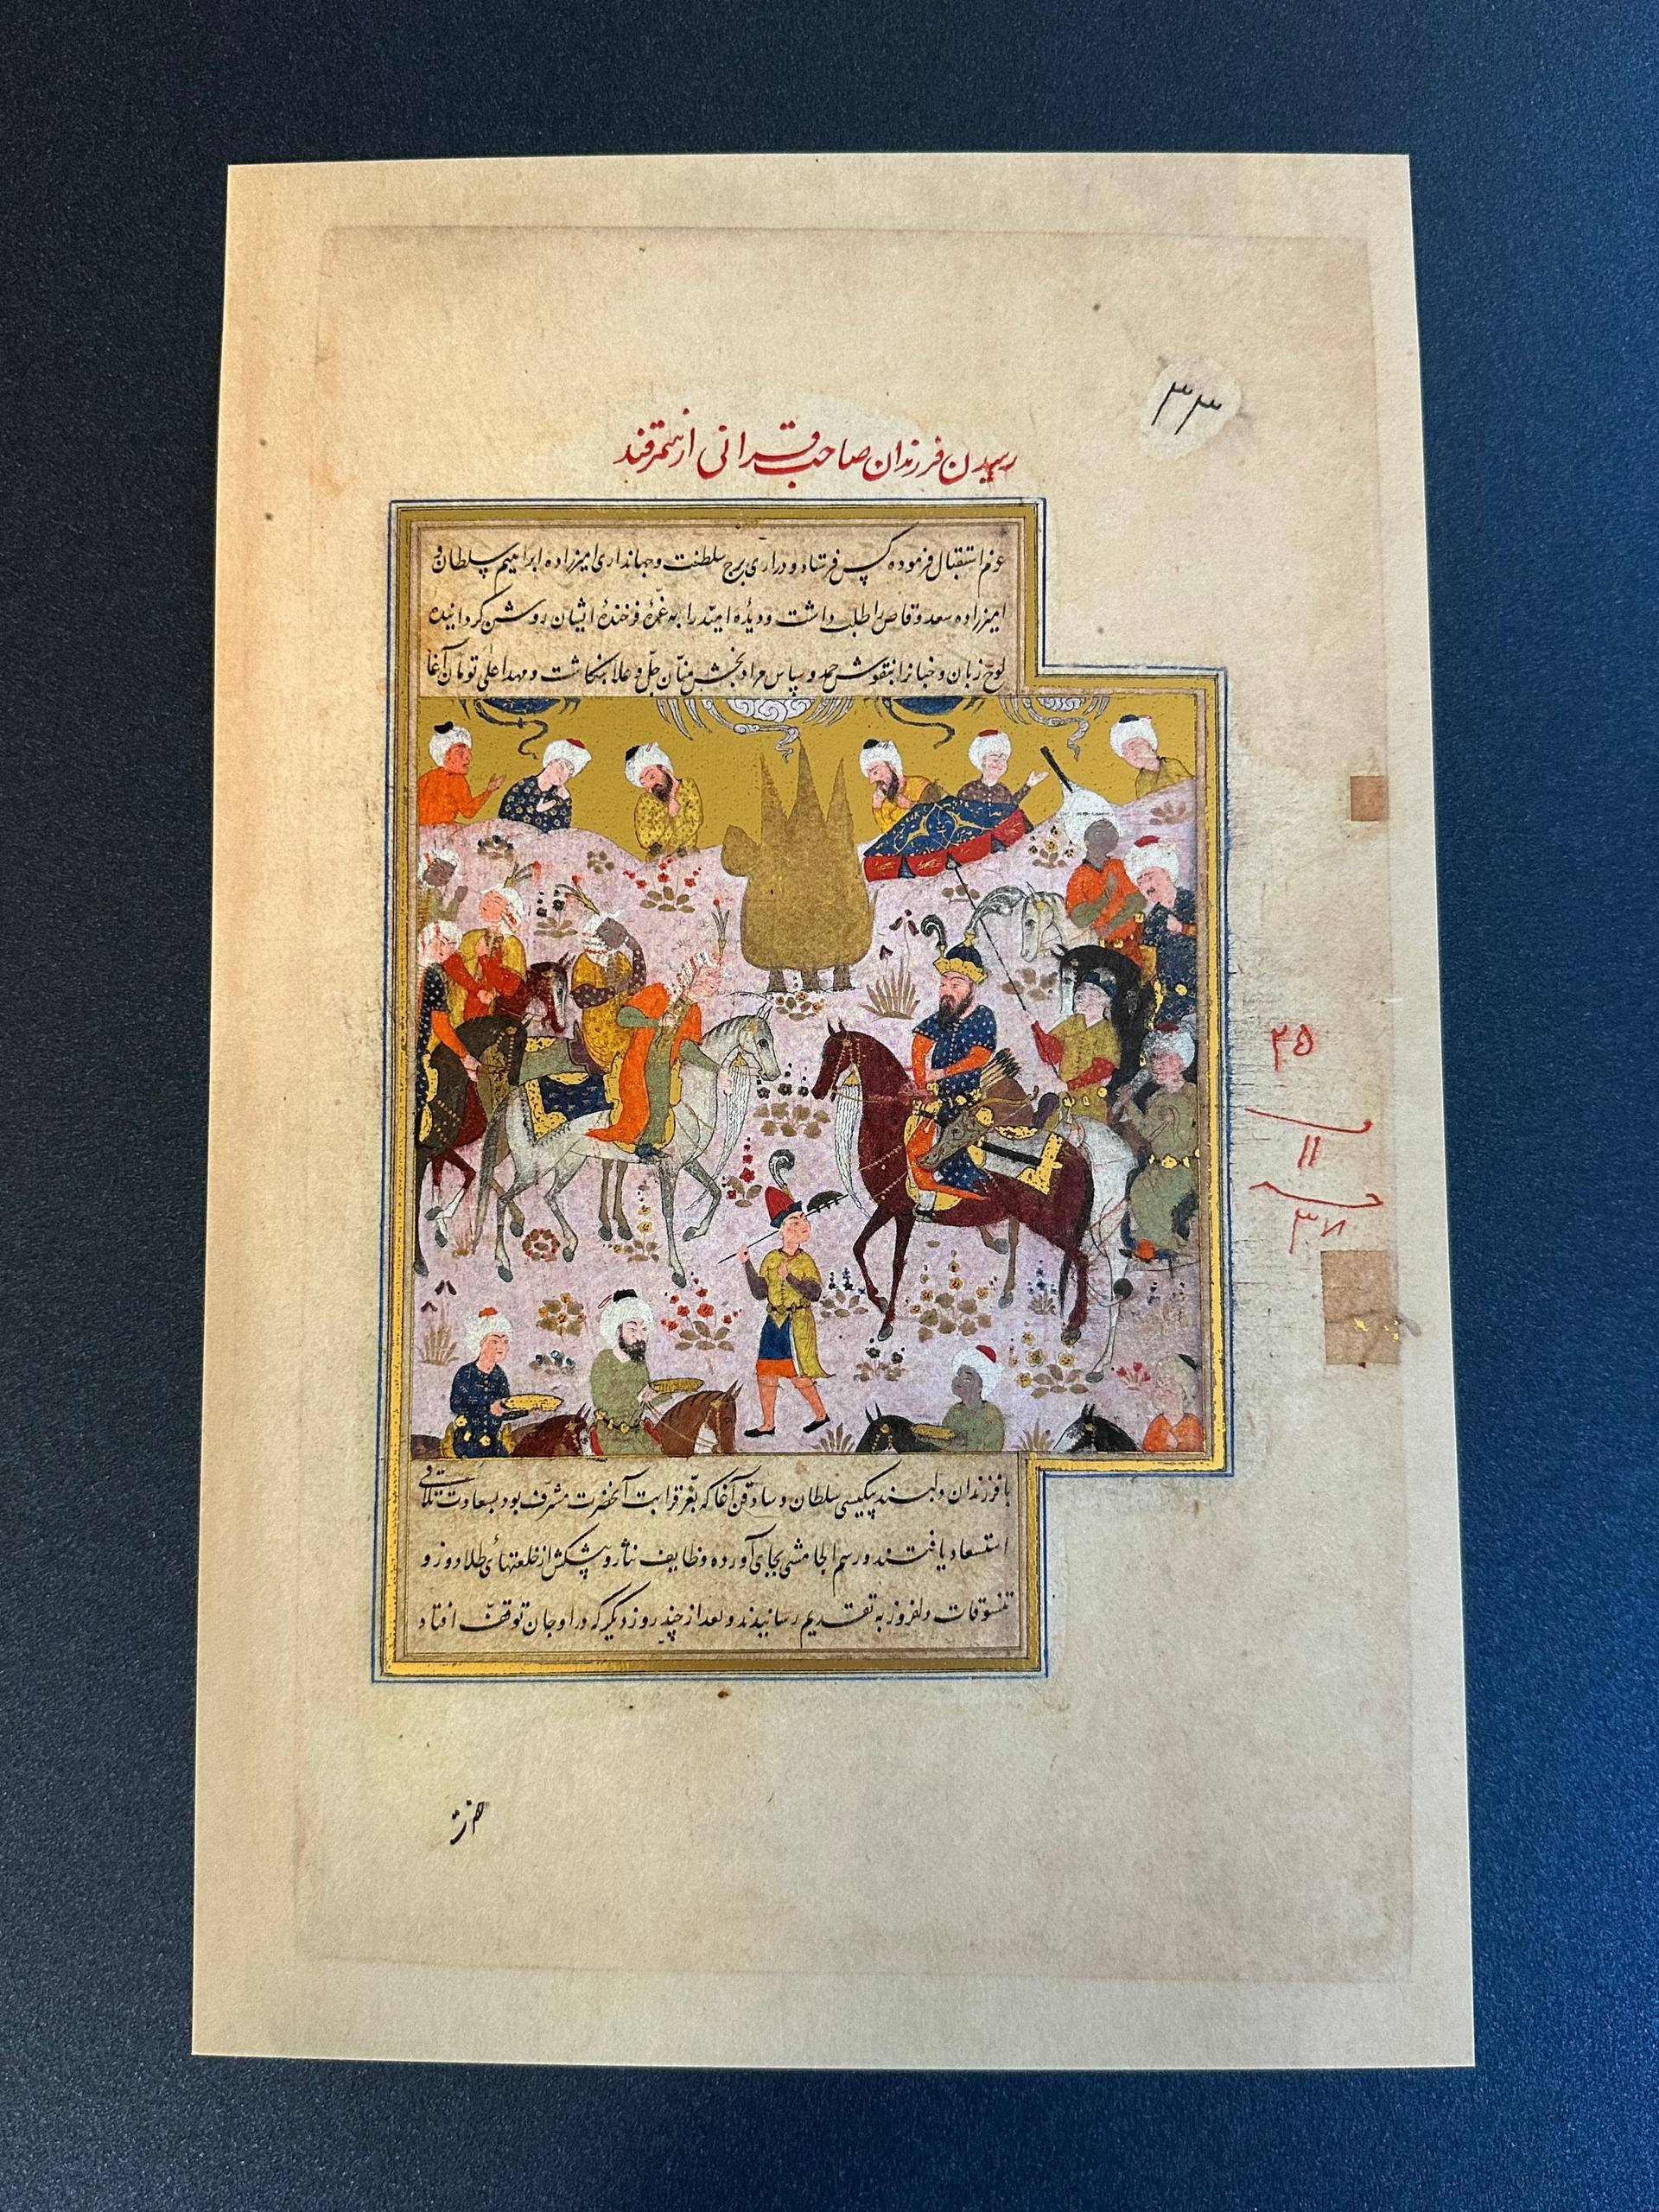 ۳۳
رسیدن فرزندان صاحب قرانی از سمرقند
عزم استقبال فرموده کس فرستاد و دراری برج سلطنت و جهانداری امیرزاده ابراهیم سلطان و
امیرزاده سعد وقاص را طلب داشت و دیدهٔ امید را به غرّهٔ فرخندهٔ ایشان روشن گردانیده
لوح زبان و جنانرا بنقوش حمد و سپاس مرادبخش منّان جلّ و علا بنگاشت و مهد اعلی تومان آغا
با فرزندان دلبند بیکیسی سلطان و سادقن آغا که بعزّ قرابت آنحضرت مشرّف بود بسعادت تلاقی
استسعاد یافتند و رسم اولجامشی بجای آورده وظایف نثار و پیشکش از خلعتهای طلادوز و
تنسوقات دلفروز به تقدیم رسانیدند و بعد از چند روز دیگر که در اوجان توقف افتاد
۲۵
۱۱
۳۷